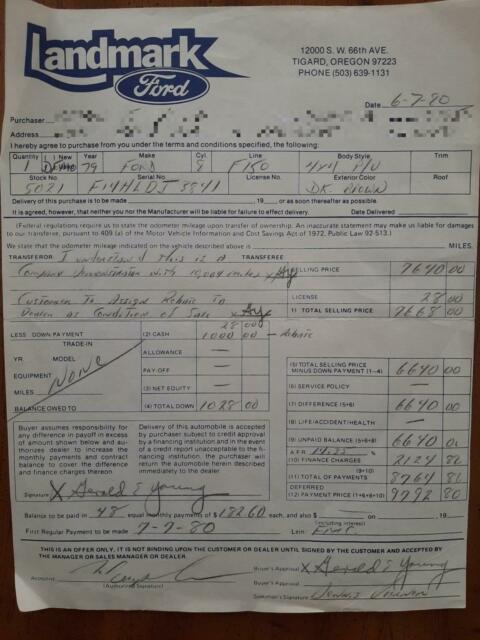 Landmark
Ford
12000 S. W. 66th AVE.
TIGARD, OREGON 97223
PHONE (503) 639-1131
Date 6-7-80
Purchaser
Address
I hereby agree to purchase from you under the terms and conditions specified, the following:
Quantity New Year Make Cyl. Line Body Style Trim
1 Demo 79 FORD 8 F150 4x4 P/U
Stock No. Serial No. License No. Exterior Color Roof
5021 F14HLDJ3841 DK. Brown
Delivery of this purchase is to be made 19 or as soon thereafter as possible.
It is agreed, however, that neither you nor the Manufacturer will be liable for failure to effect delivery. Date Delivered
(Federal regulations require us to state the odometer mileage upon transfer of ownership. An inaccurate statement may make us liable for damages
to our transferee, pursuant to 409 (a) of the Motor Vehicle Information and Cost Savings Act of 1972, Public Law 92-513.)
We state that the odometer mileage indicated on the vehicle described above is MILES.
TRANSFEROR I understand this is a TRANSFEREE
Company Demonstrator with miles x
SELLING PRICE 7640 00
Customer To Assign Rebate To
LICENSE 28 00
Dealer as Condition of Sale x
1) TOTAL SELLING PRICE 7668 00
28 00
LESS DOWN PAYMENT (2) CASH 1000 00 - Rebate
TRADE-IN ALLOWANCE —
YR. MODEL PAY-OFF —
EQUIPMENT NONE
MILES (3) NET EQUITY —
BALANCE OWED TO (4) TOTAL DOWN 1028 00
(5) TOTAL SELLING PRICE
MINUS DOWN PAYMENT (1—4) 6640 00
(6) SERVICE POLICY —
(7) DIFFERENCE (5+6) 6640 00
(8) LIFE/ACCIDENT/HEALTH —
(9) UNPAID BALANCE (5+6+8) 6640 00
A P R 14.35 %
(10) FINANCE CHARGES 2124 80
(9+10)
(11) TOTAL OF PAYMENTS 8764 80
DEFERRED
(12) PAYMENT PRICE (1+6+8+10) 9792 80
Buyer assumes responsibility
for any difference in payoff in excess
of amount shown below and au-
thorizes dealer to increase the
monthly payments and contract
balance to cover the difference
and finance charges thereon.
Delivery of this automobile is accepted
by purchaser subject to credit approval
by a financing institution and in the event
of a credit report unacceptable to the fi-
nancing institution, the purchaser will
return the automobile herein described
immediately to the dealer.
Signature X Gerald E Young
Balance to be paid in 48 equal monthly payments of $182.60 each, and also $ on 19
(including interest)
First Regular Payment to be made 7-7-80 Lein:
THIS IS AN OFFER ONLY, IT IS NOT BINDING UPON THE CUSTOMER OR DEALER UNTIL SIGNED BY THE CUSTOMER AND ACCEPTED BY
THE MANAGER OR SALES MANAGER OR DEALER.
Buyer's Approval X Gerald E Young
Accepted
(Authorized Signature)
Buyer's Approval
Salesman's Signature Dennis